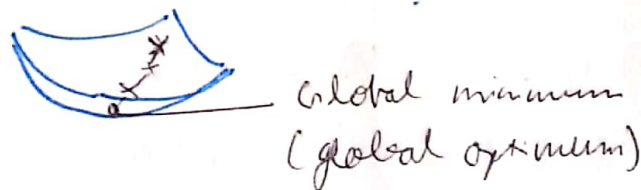 Global minimum
(global optimum)